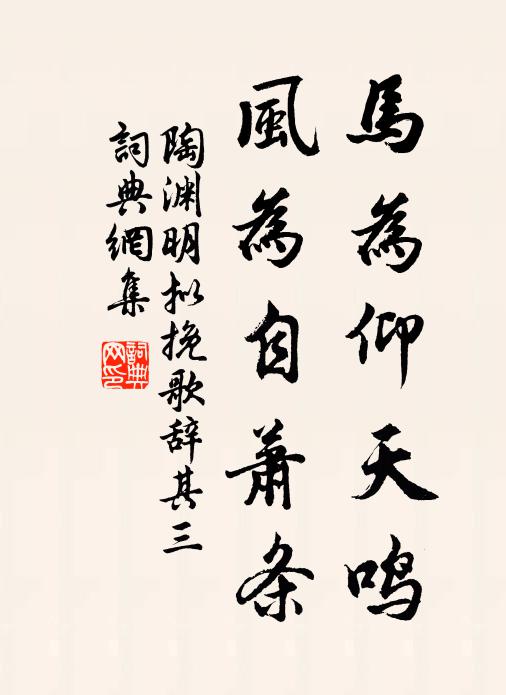 馬為仰天鳴
風為自蕭条
陶渊明拟挽歌辞其三
詞典網集
詞典网印